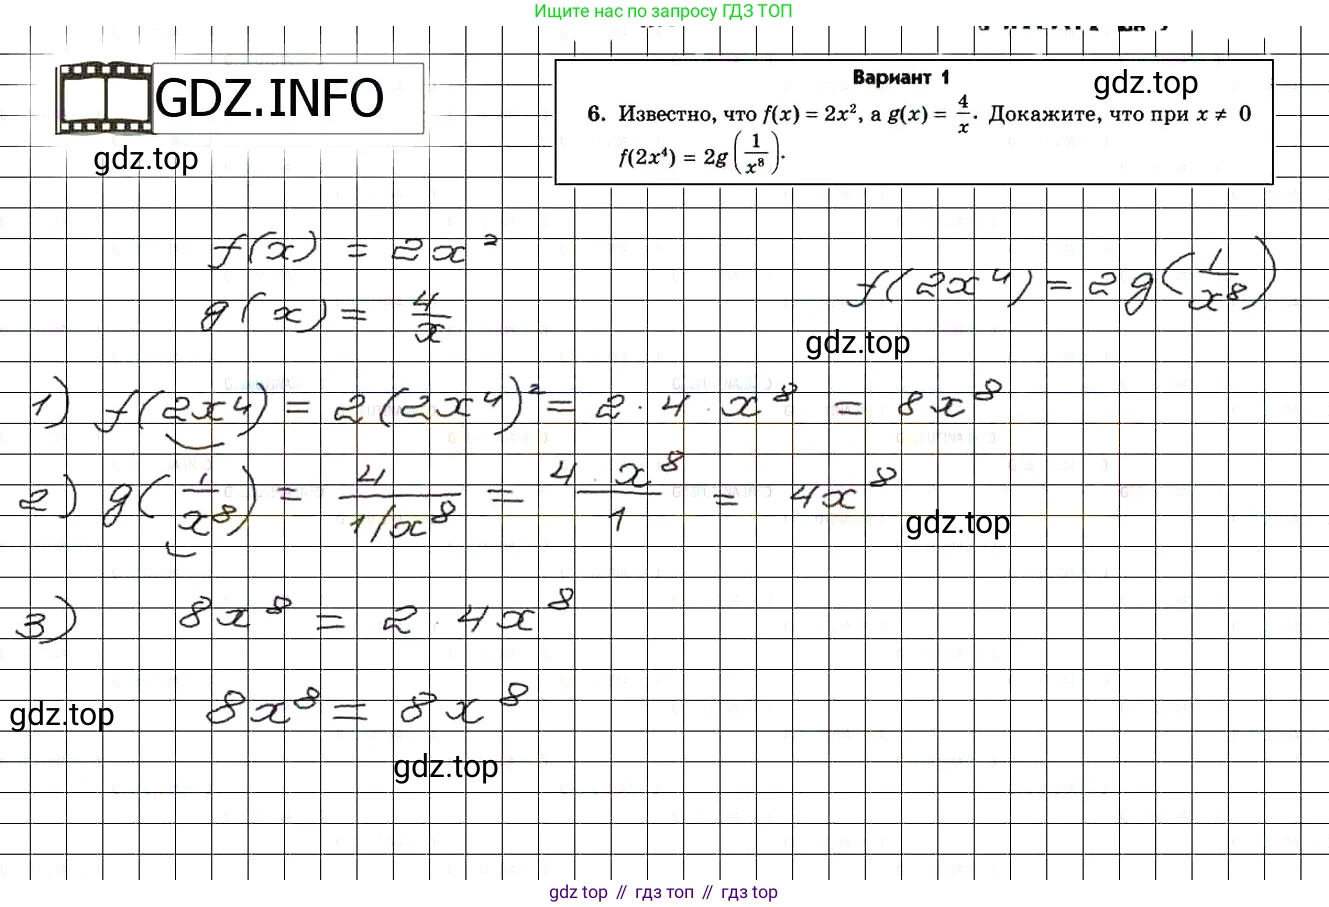 Ищите нас по запросу ГДЗ ТОП
GDZ.INFO
gdz.top
Вариант 1
gdz.top
6. Известно, что f(x) = 2x², а g(x) = 4/x. Докажите, что при x ≠ 0
f(2x⁴) = 2g(1/x⁸).
f(x) = 2x²
g(x) = 4/x
f(2x⁴) = 2g(1/x⁸)
gdz.top
1) f(2x⁴) = 2(2x⁴)² = 2 · 4 · x⁸ = 8x⁸
2) g(1/x⁸) = 4/(1/x⁸) = 4 · x⁸/1 = 4x⁸
gdz.top
3) 8x⁸ = 2 · 4x⁸
8x⁸ = 8x⁸
gdz.top
gdz.top
gdz top // гдз топ // гдз top